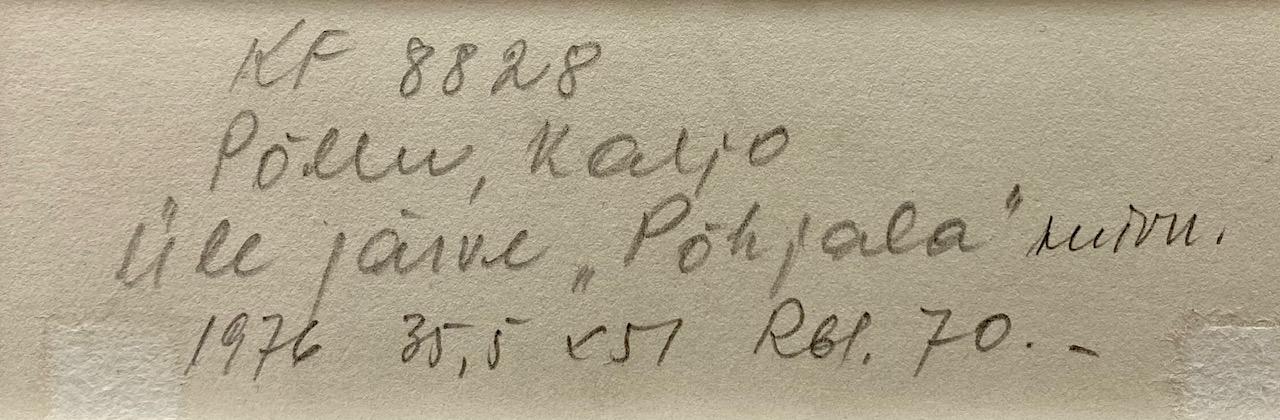 KF 8828
Põllu, Kaljo
Üle järve „Põhjala"
1976 35,5 x 51 Rbl. 70.-